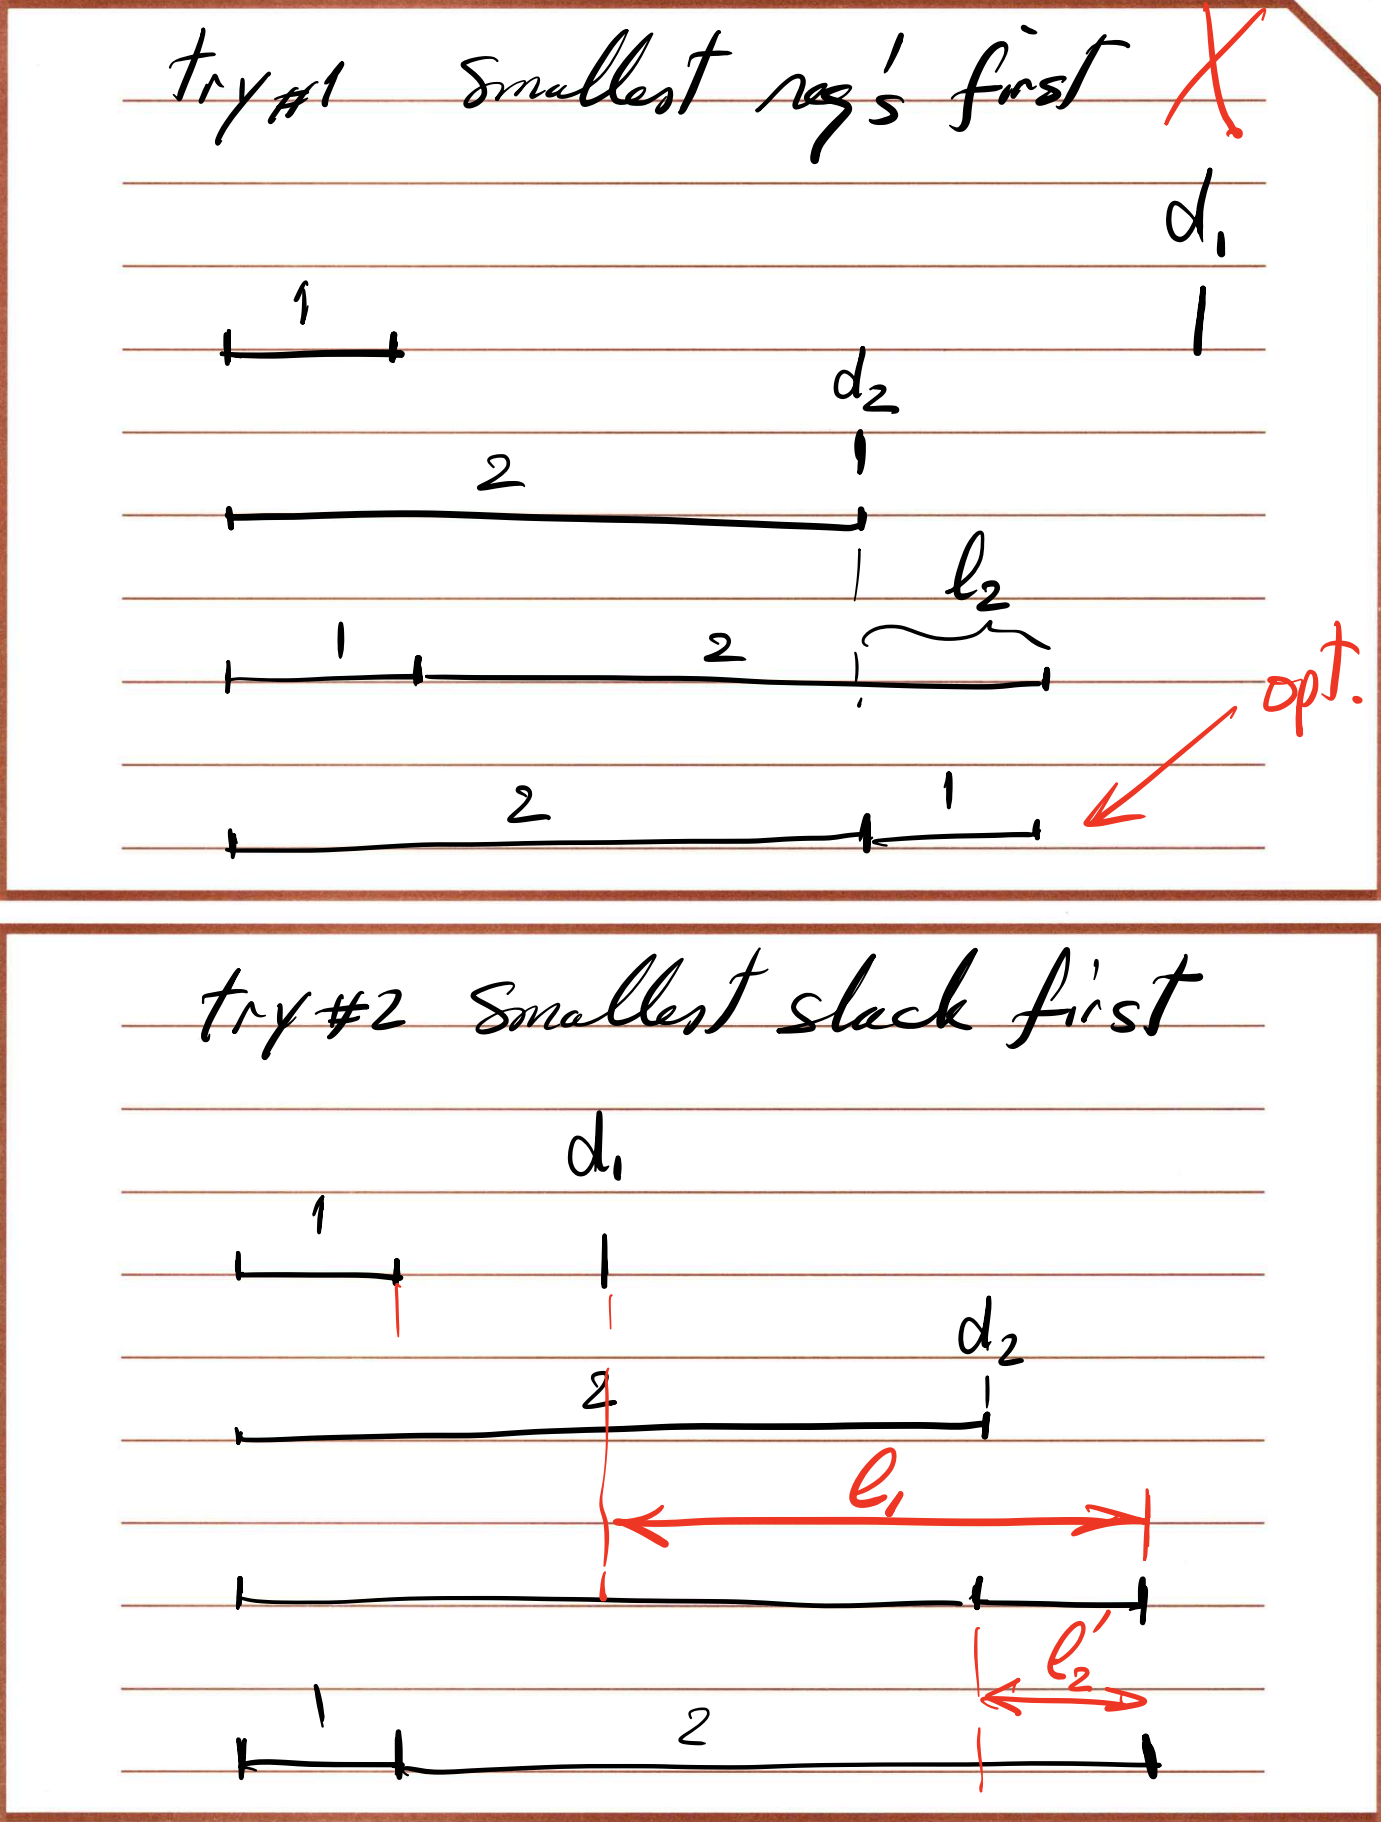 try#1 smallest req's first X
d1
1
d2
2
l2
1 2
opt.
2 1
try#2 smallest slack first
d1
1
d2
2
l1
l2'
1 2